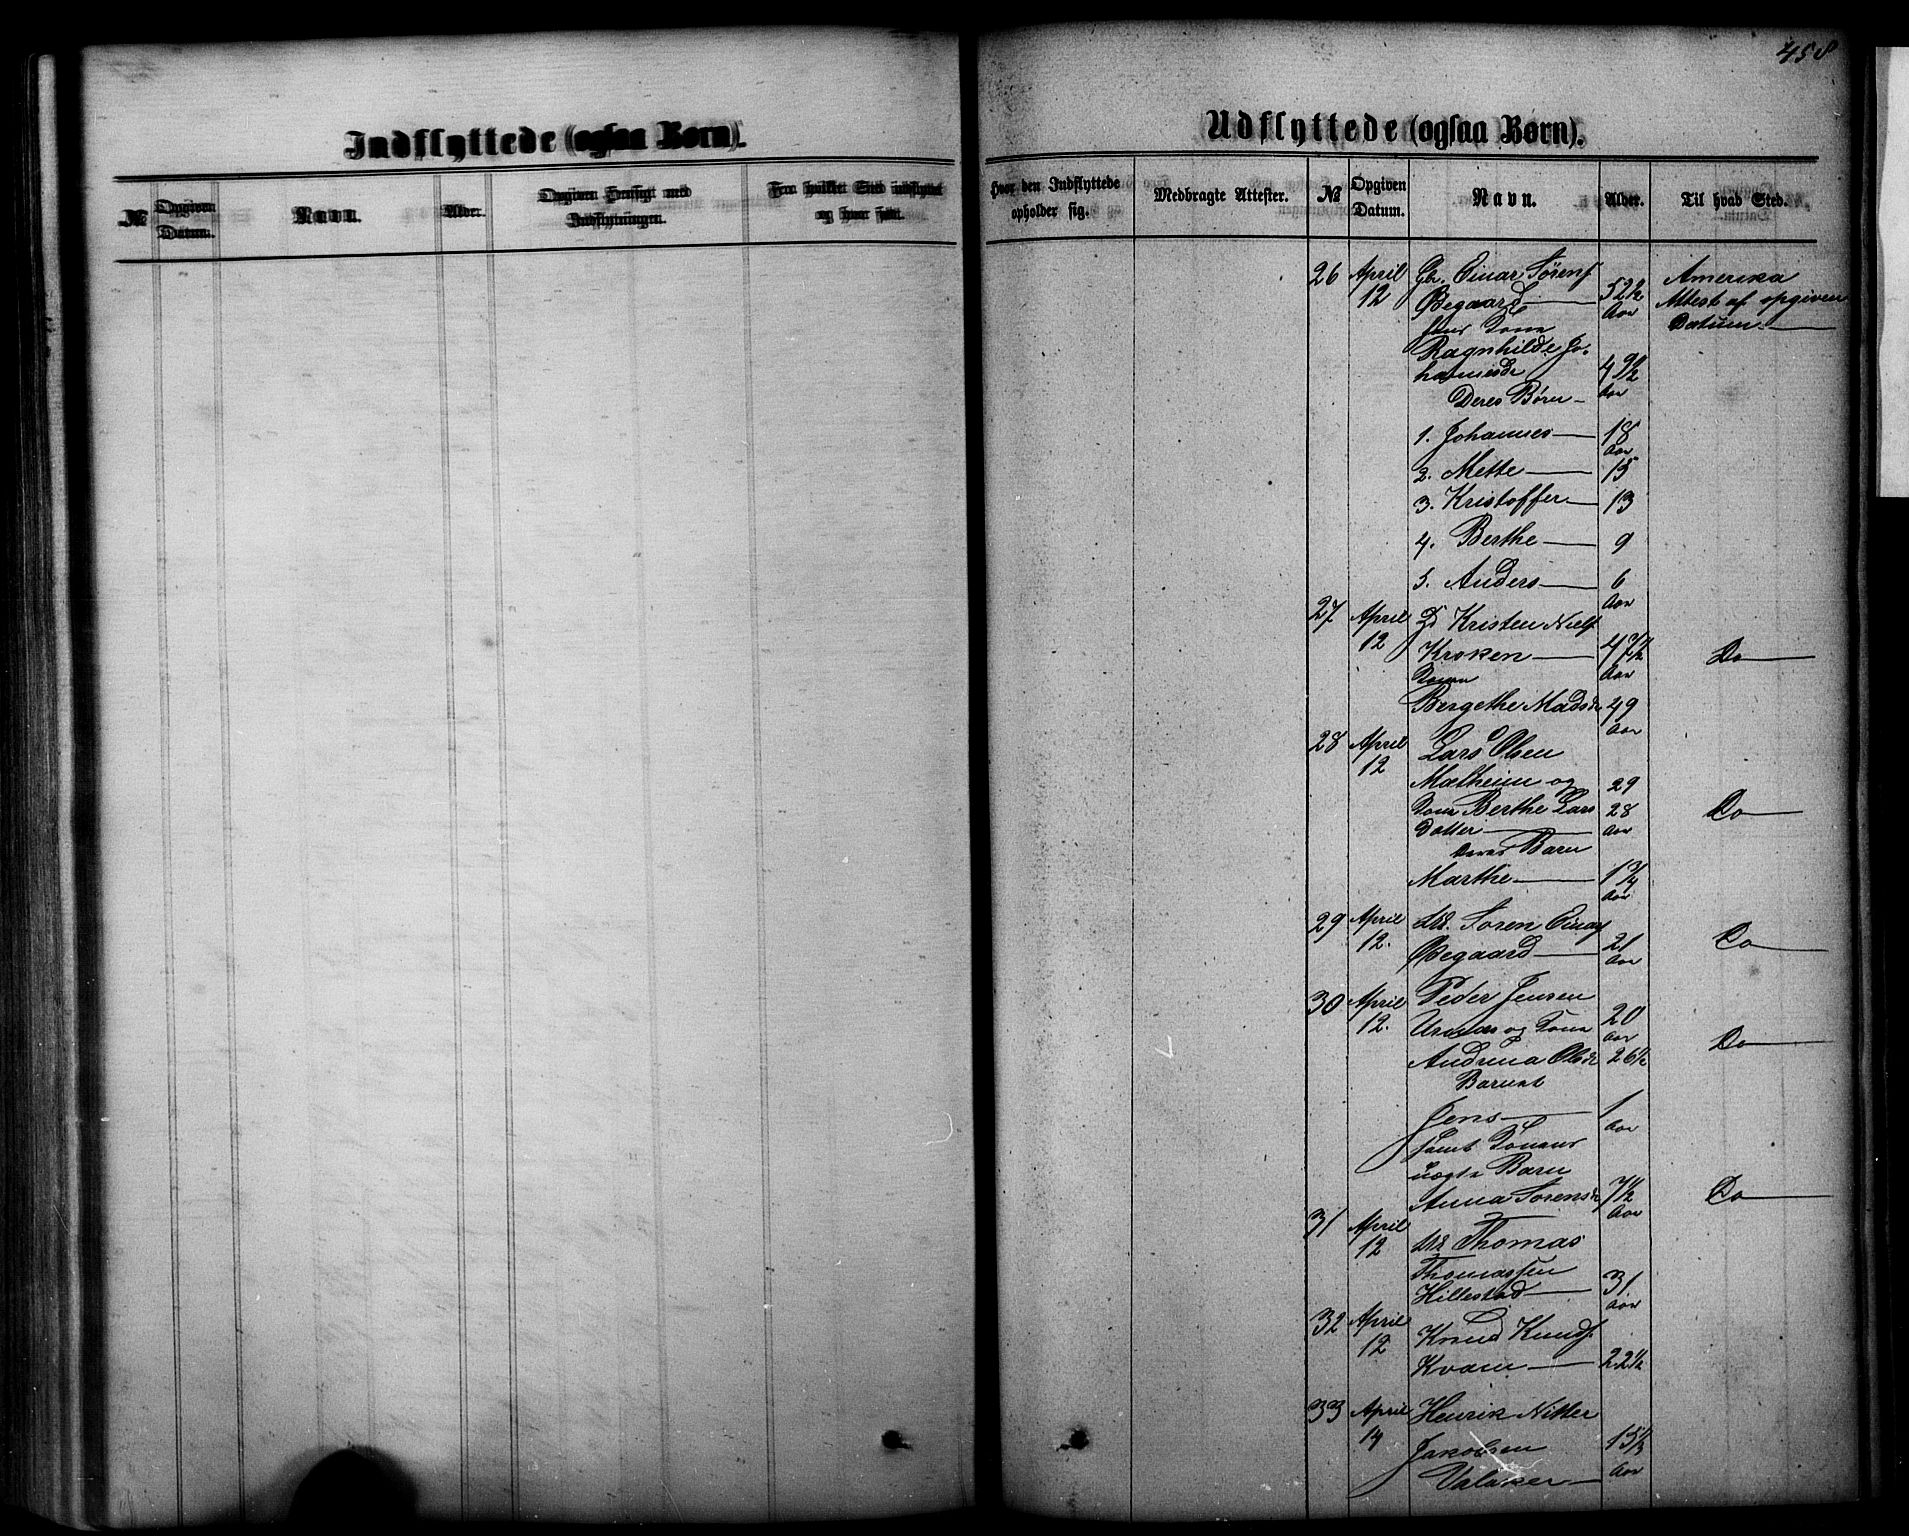 458
Indflyttede (ogsaa Børn).
№ Opgiven Datum. Navn. Alder. Opgiven Hensigt med Indflytningen. Fra hvilket Sted indflyttet og hvor født.
Udflyttede (ogsaa Børn).
Hvor den Indflyttede opholder sig. Medbragte Attester. № Opgiven Datum. Navn. Alder. Til hvad Sted.
26 April Gbr. Einar Sørens Amerika
12 Øvegaard 52½ Aar Attest af opgiven
Datum
Ragnhilde Jo-
hannesdr 49½ Aar
Deres Børn
1. Johannes 18 Aar
2. Mette 15
3. Kristoffer 13
4. Berthe 9
5. Anders 6 Aar
27 April Kristen Niels
12 Kroken 47½ Aar Do
Kone
Bergethe Madsdr 49 Aar
28 April Lars Olsen
12 Mælheim og 29
Kone Berthe Lars 28 Do
Datter Aar
deres Barn
Marthe 1¾ Aar
29 April Søren Einars
12. Øvegaard 21 Aar Do
30 April Peder Jensen
12. og Kone 20 Aar
Andrina Olsdr 26½ Do
Barnet
Jens 1 Aar
samt Konens
uægte Barn
Anna Sørensdr 7½ Aar Do
31 April Thomas
12 Thomassen
Hillestad 31 Aar
32 April Knud Knuds.
12 Kvam 22½
33 April Henrik Nitter
14 Jakobsen 15½ Aar
Valaker